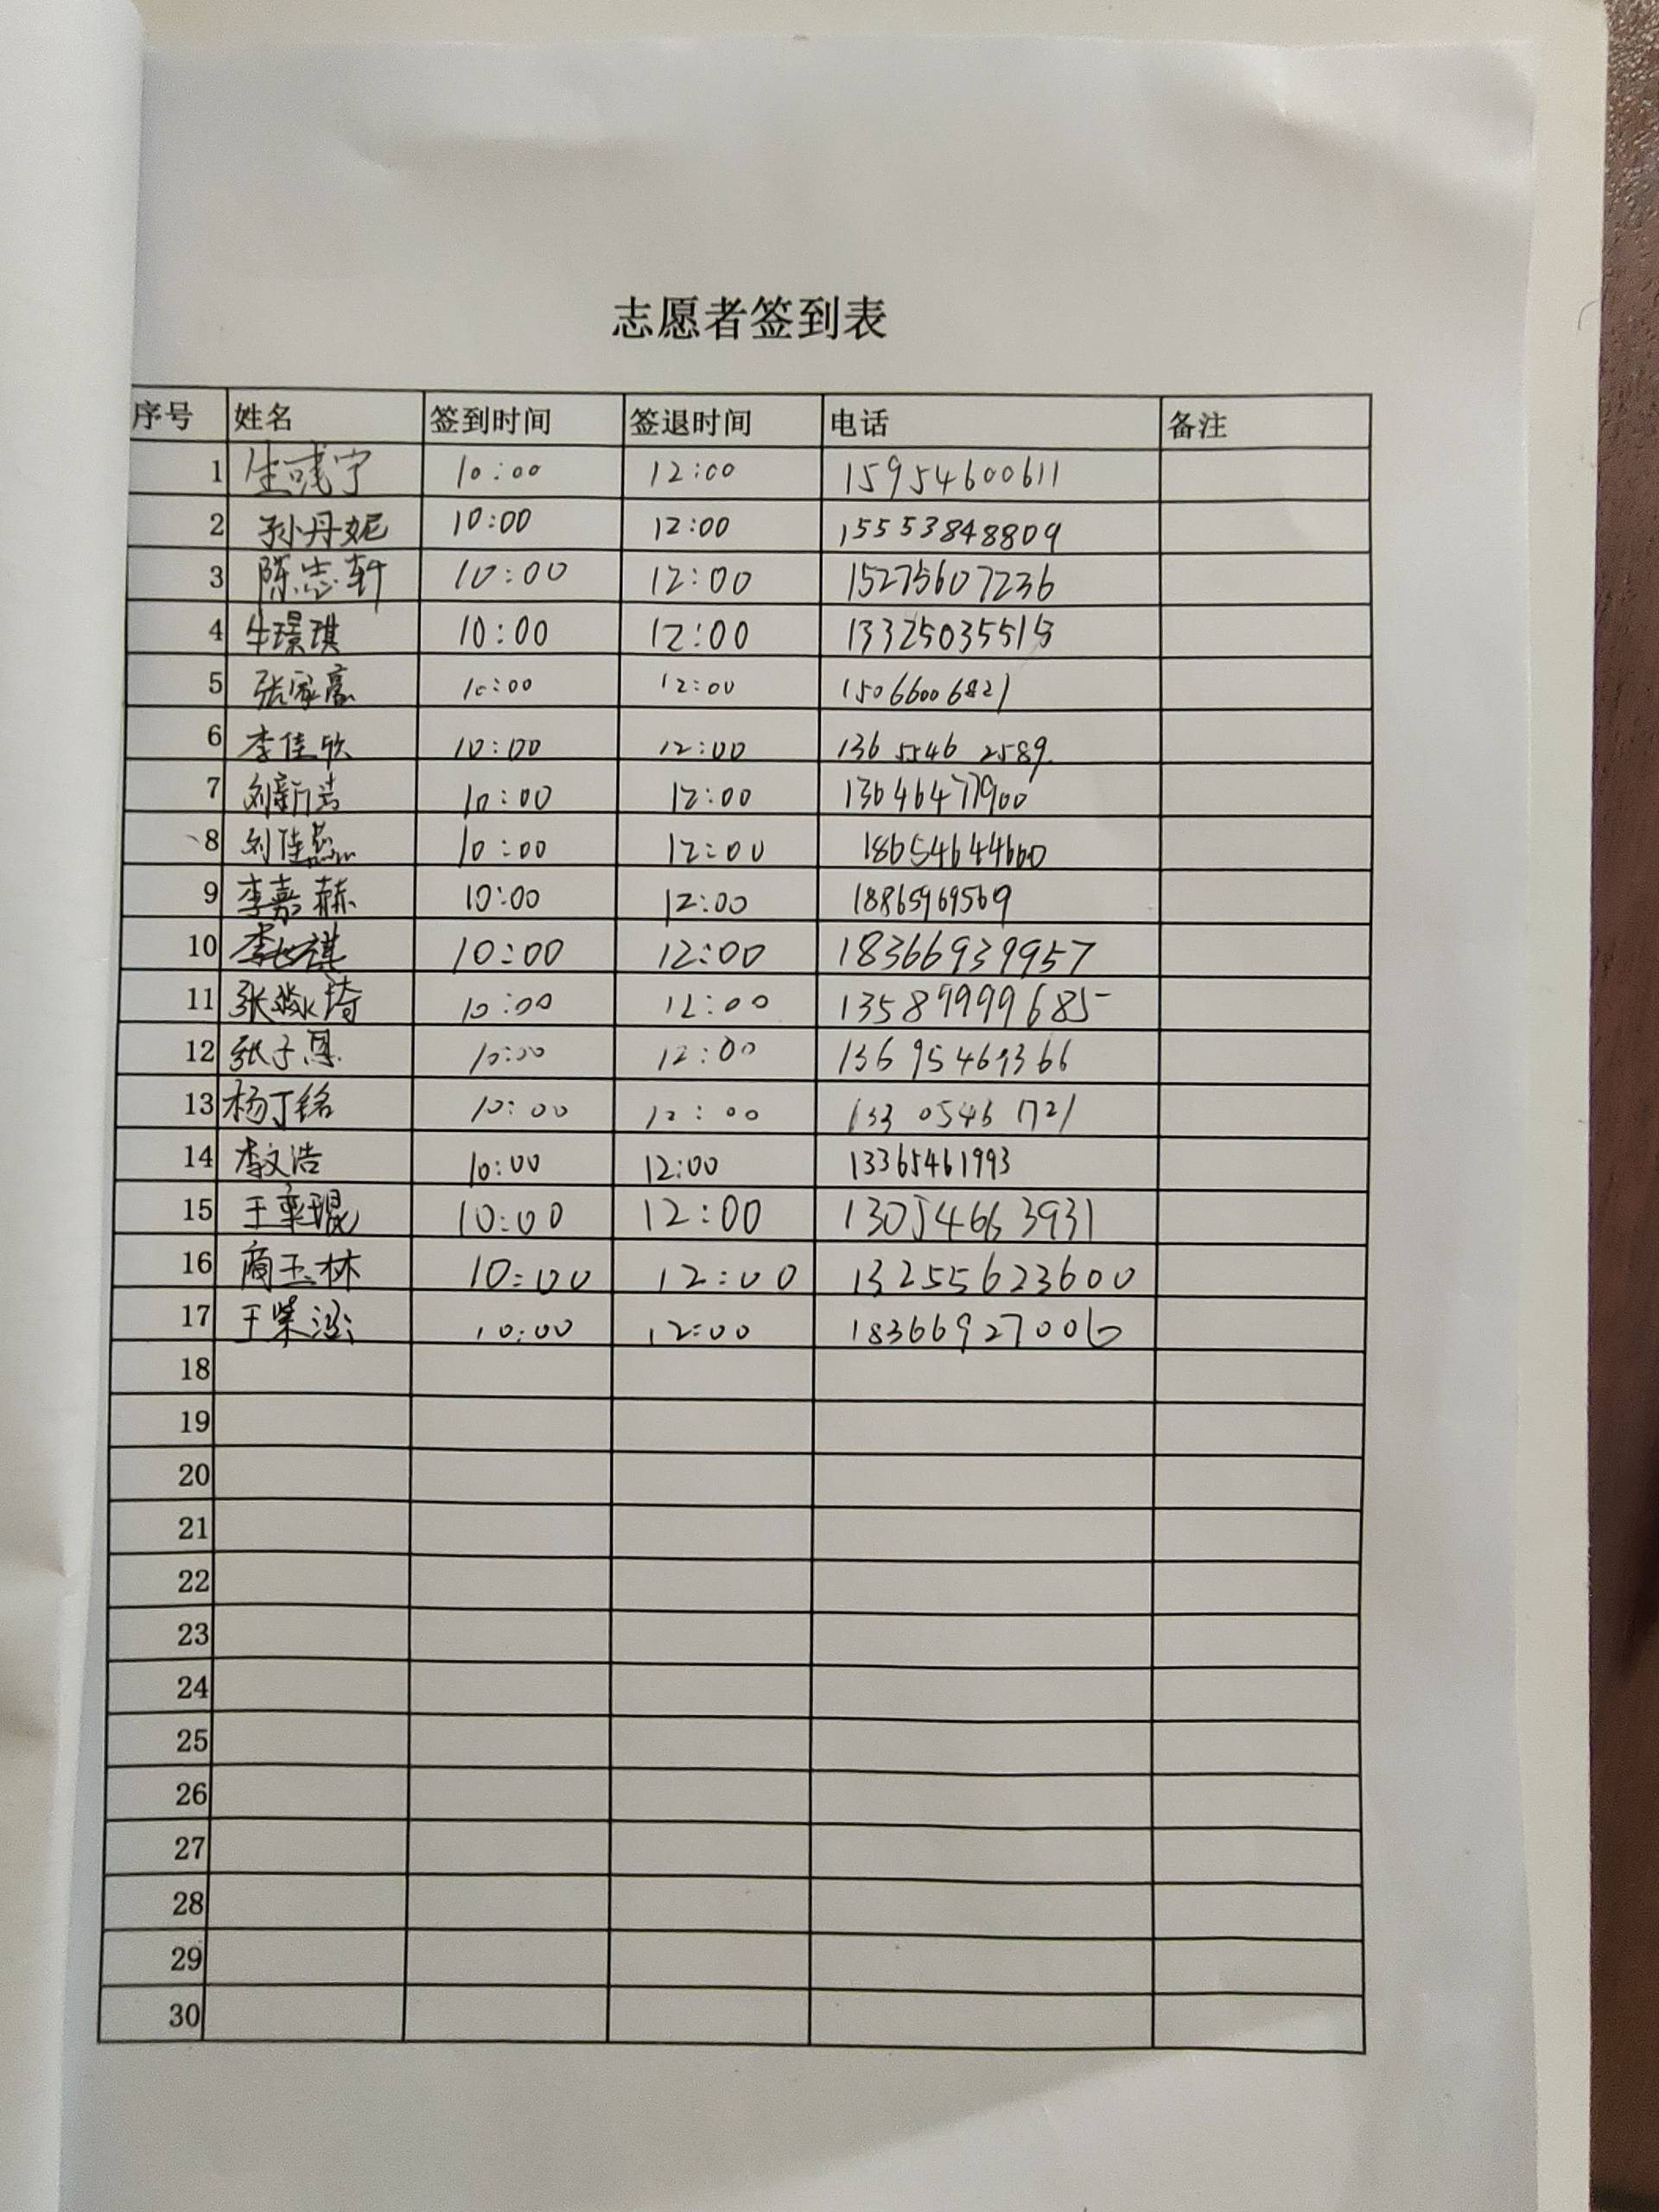 志愿者签到表
序号 姓名 签到时间 签退时间 电话 备注
1 10:00 12:00 15954600611
2 孙丹妮 10:00 12:00 15553848809
3 陈志轩 10:00 12:00 15275607236
4 牛璟琪 10:00 12:00 13325035518
5 张家豪 10:00 12:00 15066006821
6 李佳欣 10:00 12:00 136 5546 2589
7 刘新浩 10:00 12:00 13646477900
8 刘佳燕 10:00 12:00 18654644660
9 李嘉赫 10:00 12:00 18865969569
10 10:00 12:00 18366939957
11 10:00 12:00 13589999685
12 张子恩 10:00 12:00 13695469366
13 杨丁铭 10:00 12:00 133 0546 1721
14 李文浩 10:00 12:00 13365461993
15 王奕琨 10:00 12:00 13054663931
16 商玉林 10:00 12:00 13255623600
17 王紫涵 10:00 12:00 18366927006
18
19
20
21
22
23
24
25
26
27
28
29
30